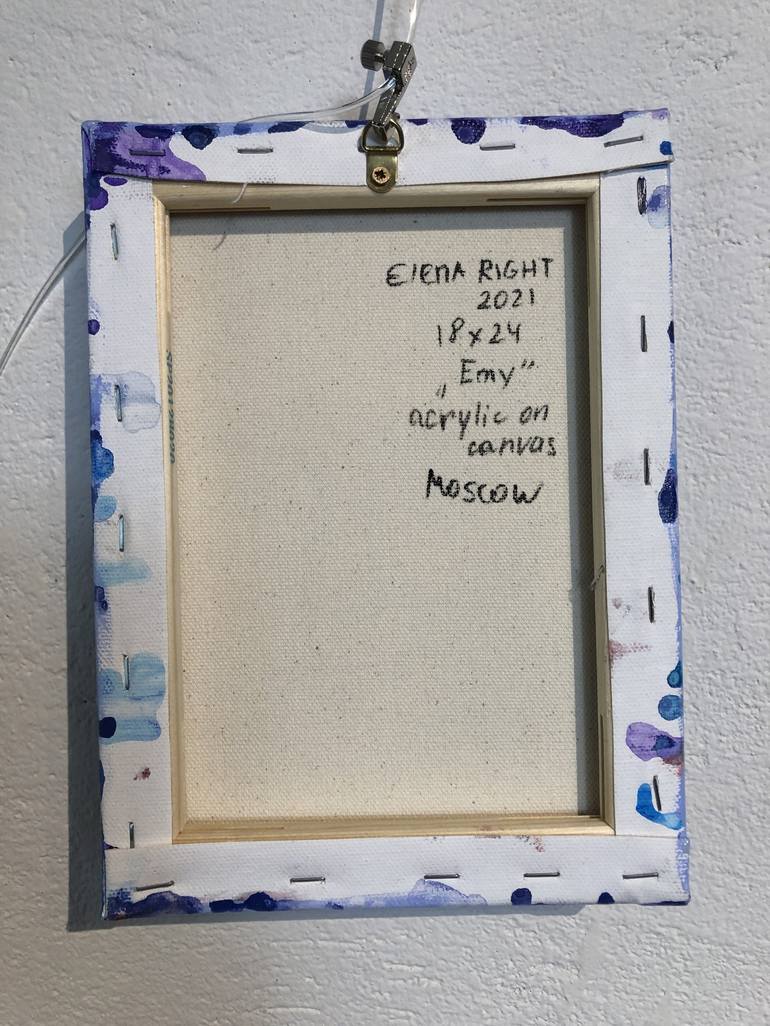 Elena RIGHT
2021
18x24
„Emy“
acrylic on
canvas
Moscow